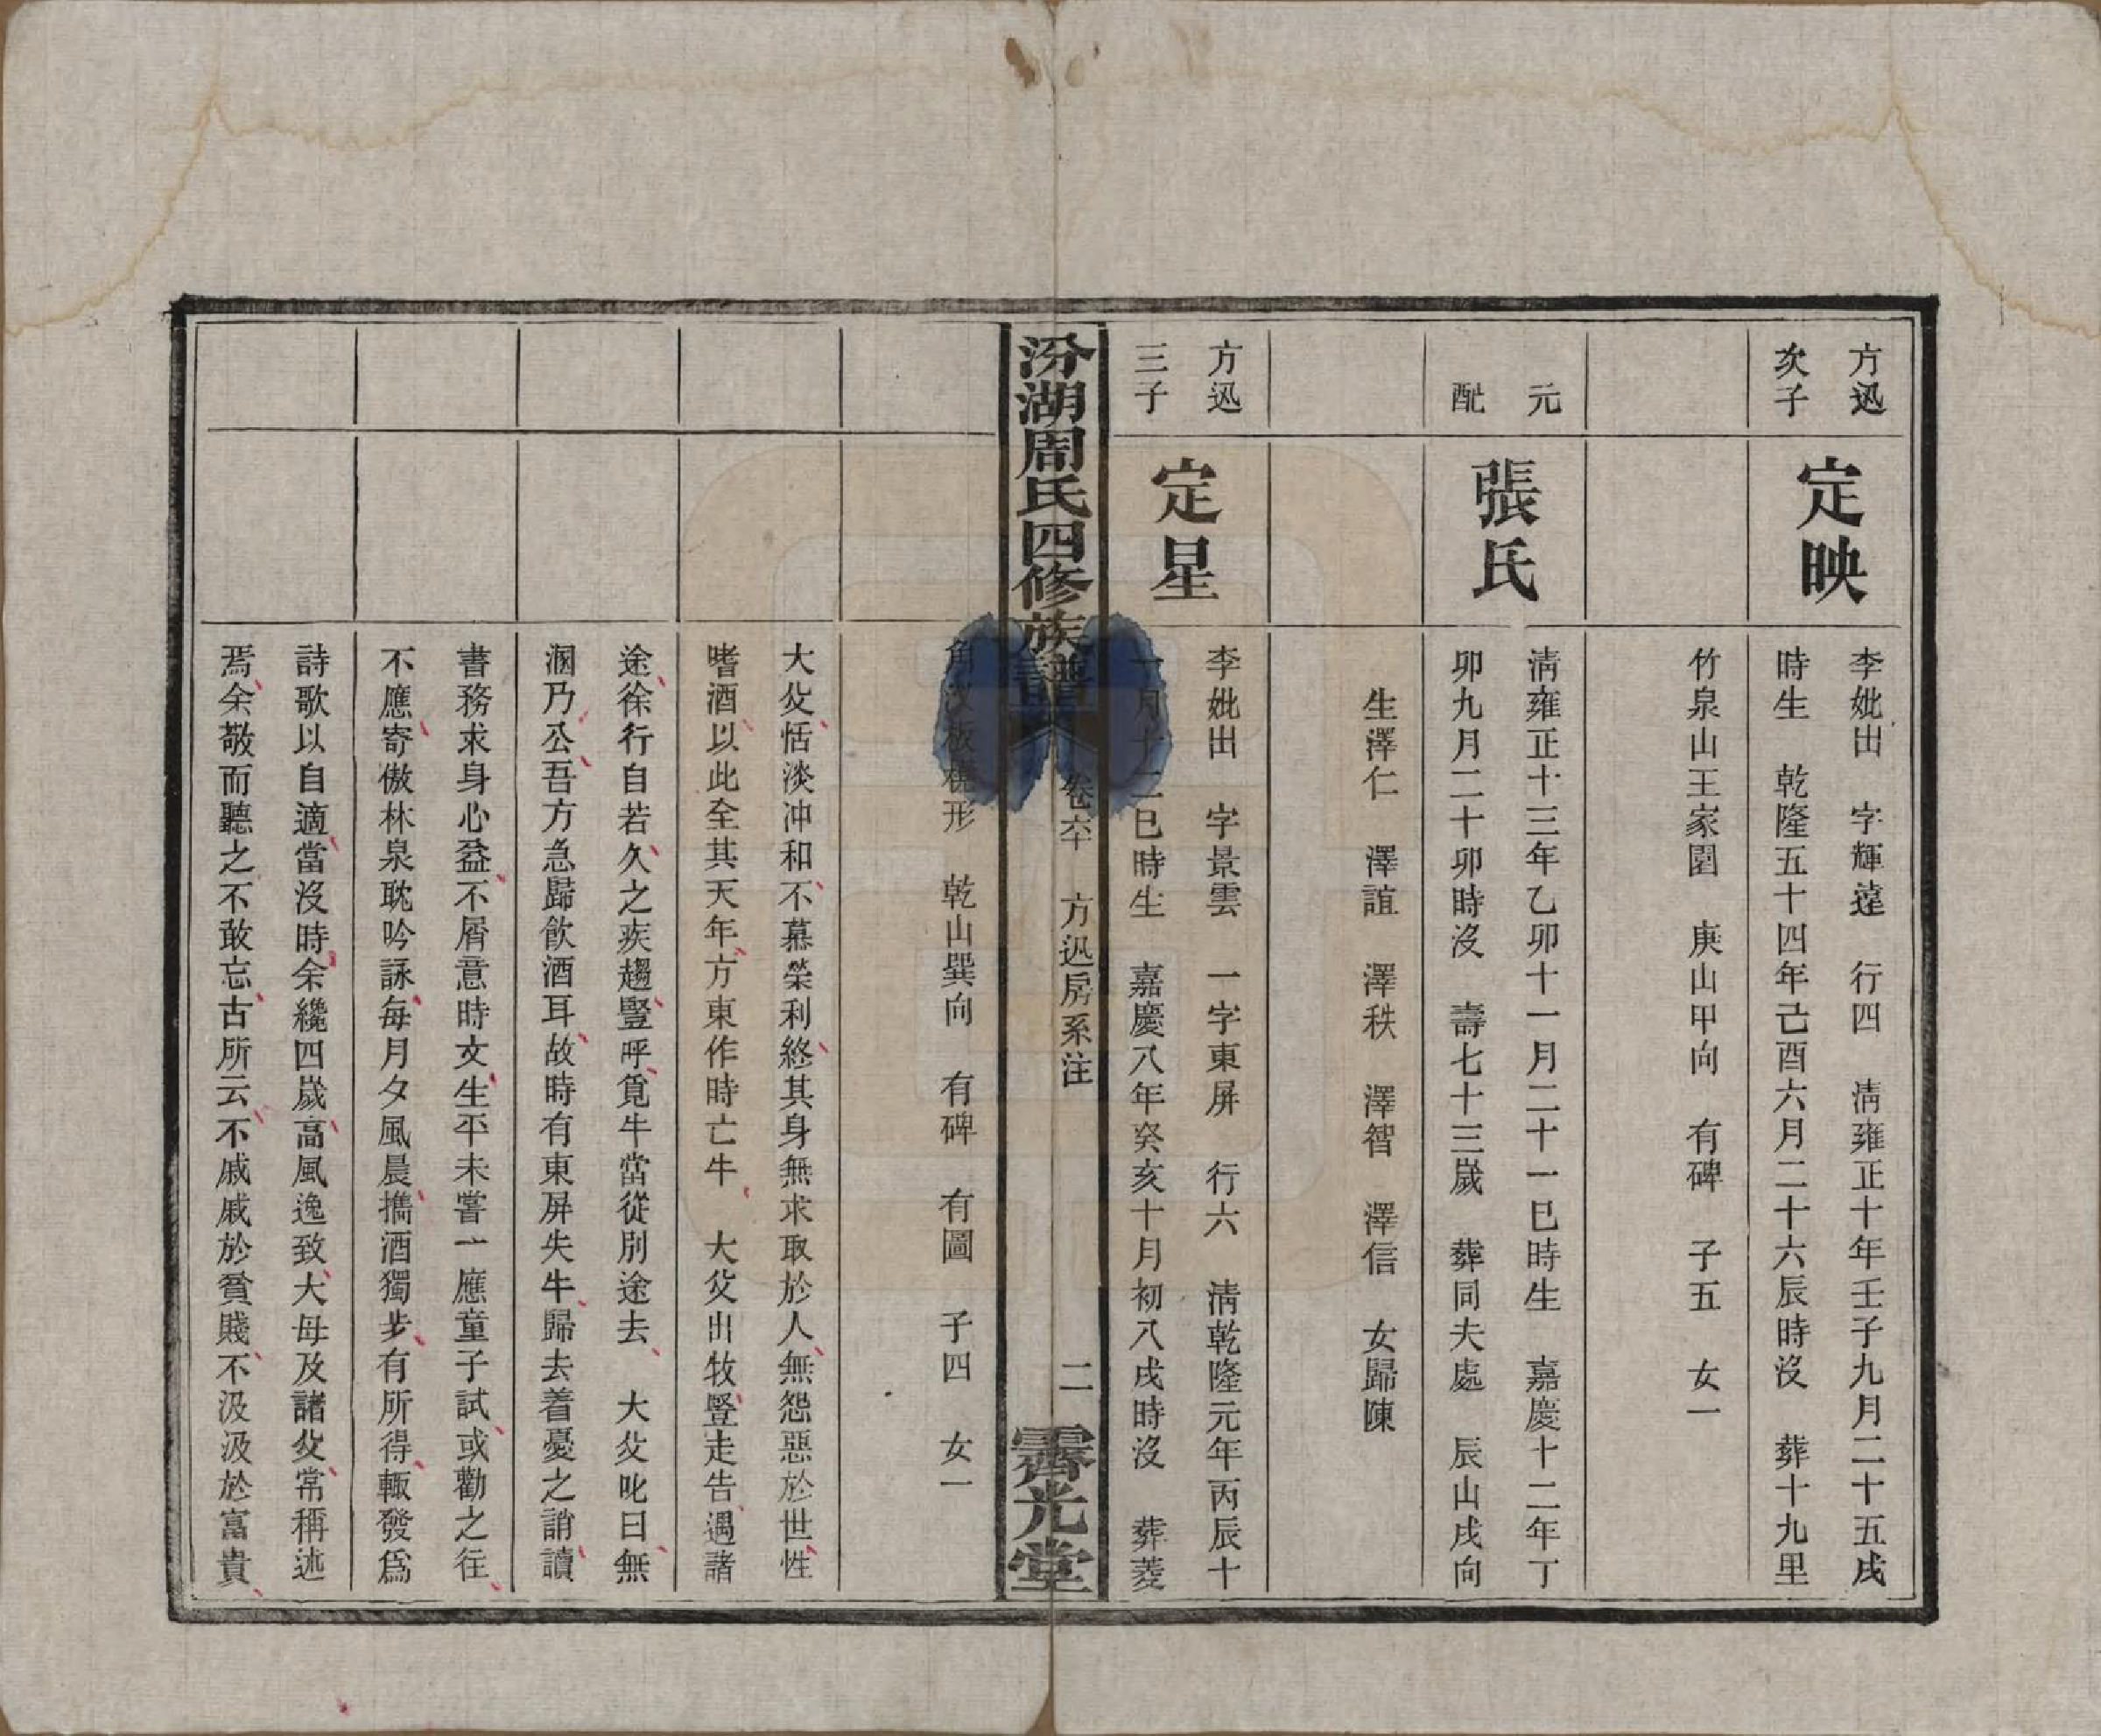 方迅
次子
定映
李妣出　字輝遠　行四　淸雍正十年壬子九月二十五戌
時生　乾隆五十四年己酉六月二十六辰時沒　葬十九里
竹泉山王家園　庚山甲向　有碑　子五　女一
元
配
張氏
淸雍正十三年乙卯十一月二十一巳時生　嘉慶十二年丁
卯九月二十卯時沒　壽七十三歲　葬同夫處　辰山戌向
生澤仁　澤誼　澤秩　澤智　澤信　女歸陳
方迅
三子
定星
李妣出　字景雲　一字東屏　行六　淸乾隆元年丙辰十
一月十二巳時生　嘉慶八年癸亥十月初八戌時沒　葬菱
汾湖周氏四修族譜
卷六　方迅房系注
二
霽光堂
角　板　形　乾山巽向　有碑　有圖　子四　女一
大父恬淡冲和不慕榮利終其身無求取於人無怨惡於世性
嗜酒以此全其天年方東作時亡牛　大父出牧豎走告遇諸
途徐行自若久之疾趨豎呼覓牛當從別途去　大父叱曰無
溷乃公吾方急歸飮酒耳故時有東屏失牛歸去着憂之誚讀
書務求身心益不屑意時文生平未嘗一應童子試或勸之往
不應寄傲林泉耽吟詠每月夕風晨攜酒獨步有所得輙發爲
詩歌以自適當沒時余纔四歲高風逸致大母及諸父常稱述
焉余敬而聽之不敢忘古所云不戚戚於貧賤不汲汲於富貴